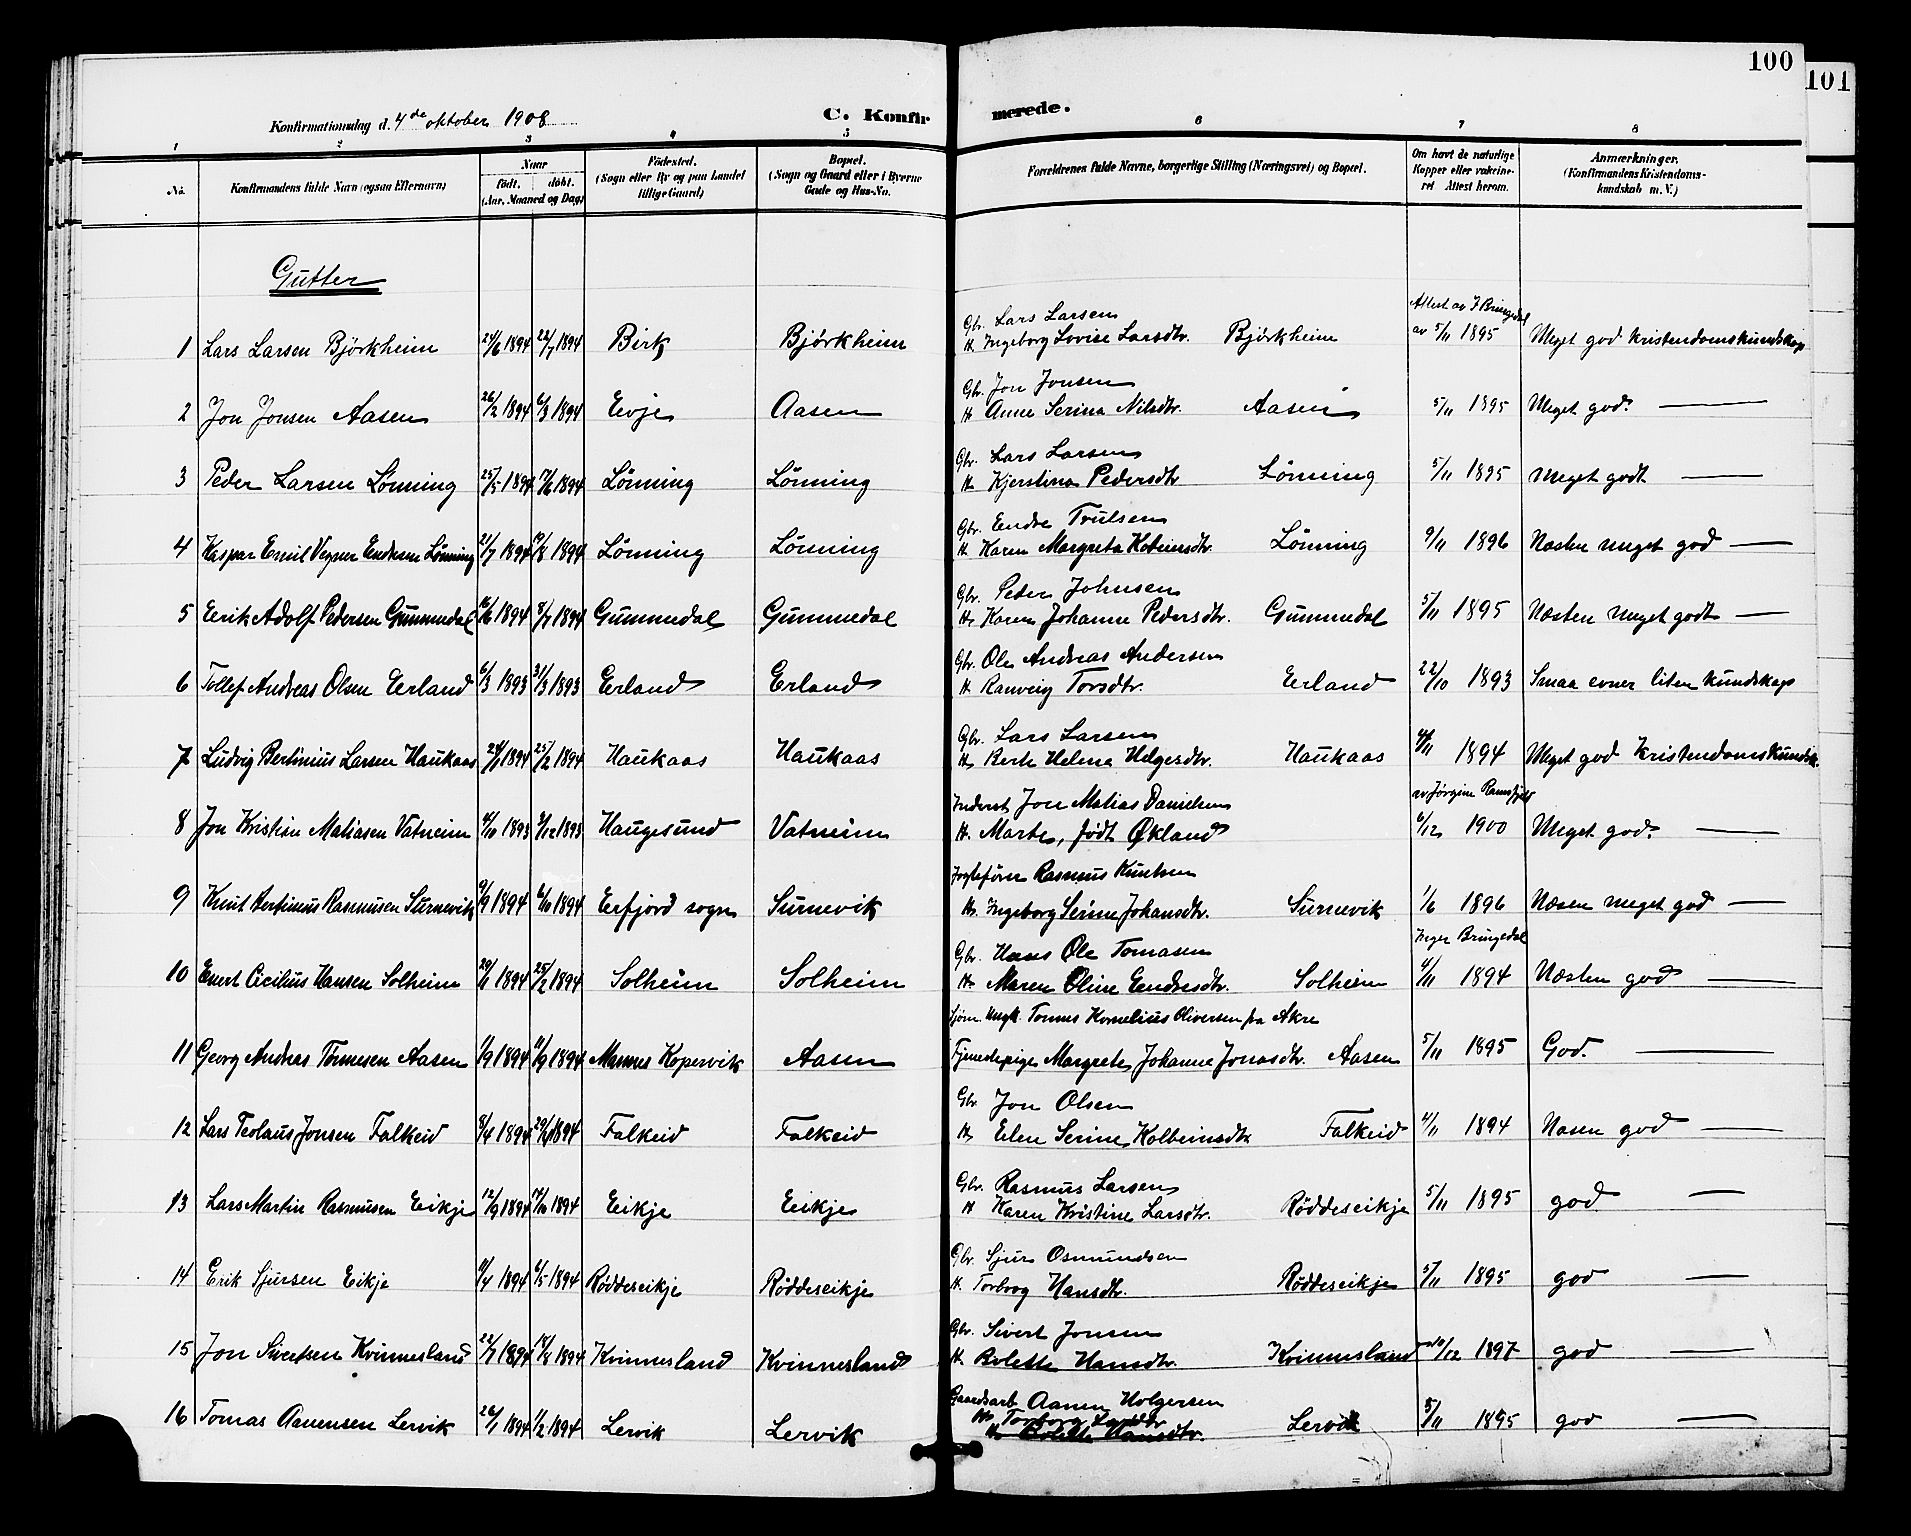 100
101
Konfirmationsdag d. 4de oktober 1908
C. Konfirmerede.
1 2 3 4 5 6 7 8
No. Konfirmandens fulde Navn (ogsaa Efternavn) Naar født, døbt. (Aar, Maaned og Dag) Fødested. (Sogn eller By og paa Landet tillige Gaard) Bopæl. (Sogn og Gaard eller i Byerne Gade og Hus-No. Forældrenes fulde Navne, borgerlige Stilling (Næringsvei) og Bopæl. Om havt de naturlige Kopper eller vakcineret Attest herom. Anmærkninger. (Konfirmandens Kristendomskundskab m. V.)
Gutter
Gbr. Lars Larsen Attest av J Bringedal
1 Lars Larsen Björkheim 24/6 1894 22/7 1894 Birk Björkheim H. Ingeborg Lovise Larsdtr. Björkheim av 5/11 1895 Meget god Kristendomskundskap
Gbr. Jon Jonsen
2 Jon Jonsen Aasen 26/2 1894 6/3 1894 Evje Aasen H. Anne Serina Nilsdtr. Aasen 5/11 1895 Meget god. —
Gbr. Lars Larsen
3 Peder Larsen Lönning 25/5 1894 17/6 1894 Lönning Lönning H. Kjerstina Pedersdtr Lönning 5/11 1895 Meget godt —
Gbr. Endre Trulsen
4 Kaspar Emil Vegner Endresen Lönning 21/7 1894 19/8 1894 Lönning Lönning H. Karen Margreta Kobeinsdtr. Lönning 9/11 1896 Næsten meget god —
Gbr. Peder Johnsen
5 Eerik Adolf Pedersen Gummedal 16/6 1894 8/7 1894 Gummedal Gummedal H. Karen Johanne Pedersdtr. Gummedal 5/11 1895 Næsten meget godt —
Gbr. Ole Andreas Andersen
6 Tollef Andreas Olsen Eerland 6/3 1893 31/3 1893 Eerland Erland H. Ranveig Torsdtr. Eerland 22/10 1893 Smaa evner liten kundskap
Gbr. Lars Larsen
7 Ludvig Bertinius Larsen Haukaas 24/1 1894 25/2 1894 Haukaas Haukaas H. Berte Helene Helgesdtr. Haukaas 4/11 1894 Meget god Kristendomskundsk.
Inderst Jon Matias Danielsen av Jørgine Ramsfjell
8 Jon Kristian Matiasen Vatneim 4/10 1893 3/12 1893 Haugesund Vatneim H. Marte, født Økland 6/12 1900 Meget god. —
Rasmus Knutsen
9 Knut Bertinius Rasmusen Surnevik 9/9 1894 6/10 1894 Erfjord sogn Surnevik H. Ingeborg Serine Johansdtr. Surnevik 1/6 1896 Næsen meget god —
Gbr. Hans Ole Tomasen Inger Bringedal
10 Enert Cicilius Hansen Solheim 20/1 1894 25/2 1894 Solheim Solheim H. Maren Oline Eendresdtr. Solheim 4/11 1894 Næsten god —
Sjöm. Ungk. Tönnes Kornelius Oliversen fra Akre
11 Georg Andreas Tönnesen Aasen 1/9 1894 11/9 1894 Kopervik Aasen Tjenestepige Margrete Johanne Jonasdtr. Aasen 5/11 1895 God. —
Gbr Jon Olsen
12 Lars Teolaus Jonsen Falkeid 8/4 1894 29/4 1894 Falkeid Falkeid H. Eelen Serine Kolbeinsdtr Falkeid 4/11 1894 Næsen god —
Gbr. Rasmus Larsen
13 Lars Martin Rasmusen Eikje 12/9 1894 14/10 1894 Eikje Eikje H Karen Kristine Larsdtr. Røddeseikje 5/11 1895 god —
Gbr. Sjur Osmundsen
14 Erik Sjursen Eikje 11/4 1894 6/5 1894 Røddeseikje Røddeseikje H. Torborg Hansdtr. Røddeseikje 5/11 1895 god —
Gbr. Sivert Jonsen
15 Jon Sivertsen Kvinnesland 22/7 1894 19/8 1894 Kvinnesland Kvinnesland H. Bolette Hansdtr. Kvinnesland 10/12 1897 god —
Gaardsarb Aanen Holgersen
16 Tomas Aanensen Lervik 26/1 1894 1/2 1894 Lervik Lervik H. Torborg Larsdtr Lervik 5/11 1895 god —
H. Bolette Hansdtr.